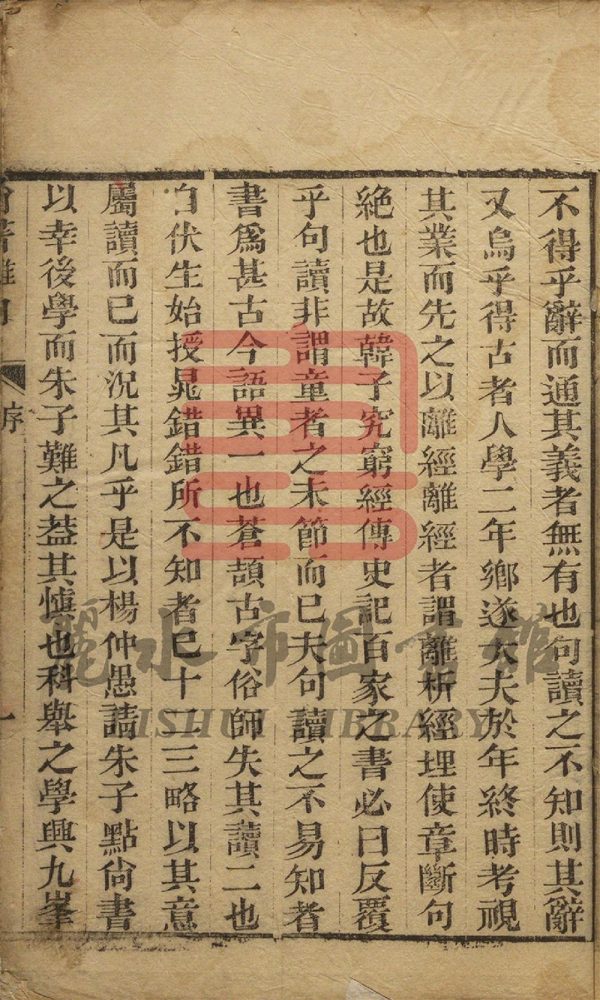 不得乎辭而通其義者無有也句讀之不知則其辭
又烏乎得古者人學二年鄉遂大夫於年終時考視
其業而先之以離經離經者謂離析經理使章斷句
絶也是故韓子究窮經傳史記百家之書必曰反覆
乎句讀非謂童者之末節而已夫句讀之不易知者
書爲甚古今語異一也蒼頡古字俗師失其讀二也
自伏生始授晁錯錯所不知者已十二三略以其意
屬讀而已而況其凡乎是以楊仲愚請朱子點尙書
以幸後學而朱子難之葢其愼也科舉之學興九峯
序
一
麗水市圖書館
LISHUI LIBRARY